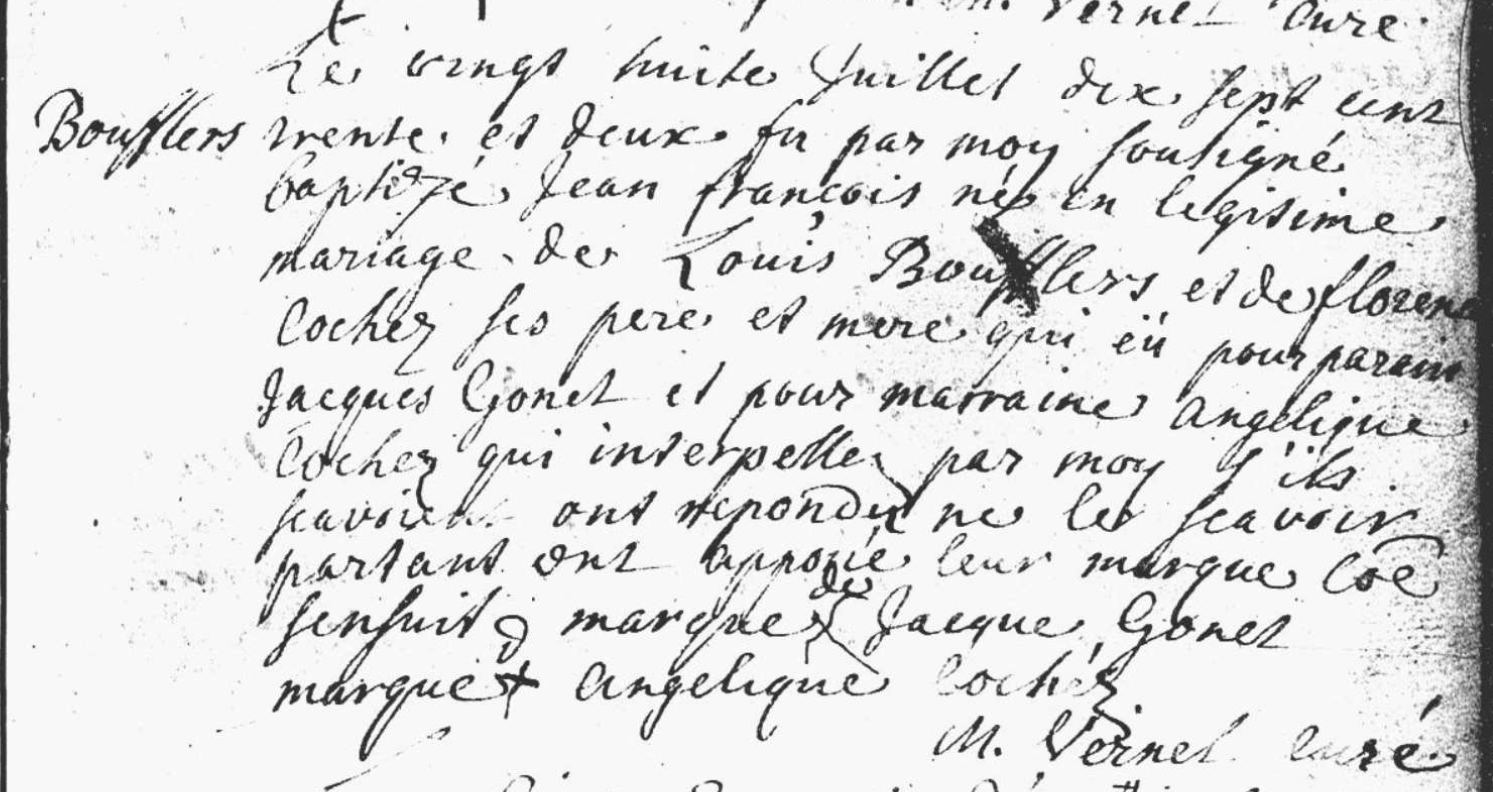 M. Vernet Curé
Le vingt huite Juillet dix sept cent
Boufflers trente et deux fu par moy soutigné
baptizé Jean françois né en legitime
mariage de Louis Boufflers et de florence
Cochez ses pere et mere qui eü pour parain
Jacques Gonet et pour marraine angelique
Cochez qui interpelle par moy s'ils
scavoient ont repondu ne le scavoir
partant ont apposé leur marque Coe
sensuit marque de Jacque Gonet
marque + angelique Cochéz
M. Vernet curé